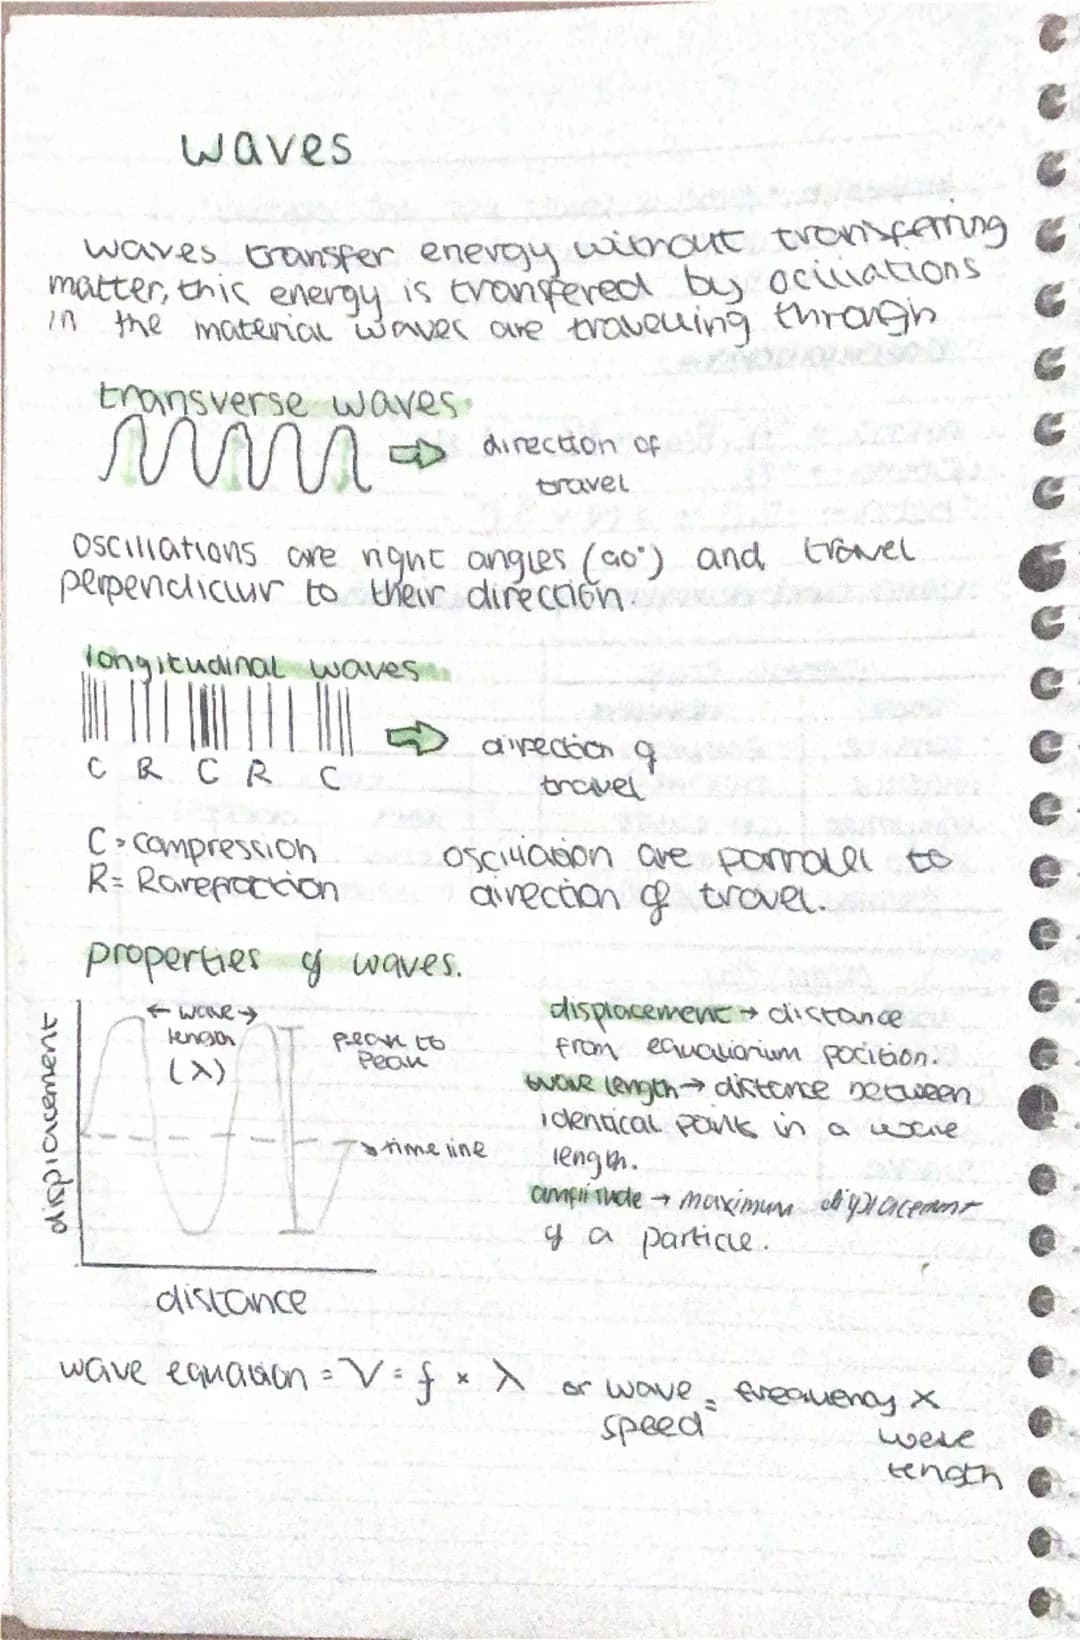 waves
waves transfer energy without transferring
matter, this energy is transfered by ocillations
in the material waves are travelling through
transverse waves
direction of
travel
oscillations are right angles (90°) and travel
perpendiclur to their direction.
longitudinal waves
C R C R C
direction of
travel
C = compression
R = Rarefraction
oscillation are parralel to
direction of travel.
properties of waves.
displacement
← wave →
length
(λ)
peak to
peak
→ time line
distance
displacement → distance
from equalibrium pocition.
wave length → distance between
identical points in a wave
length.
amplitude → maximum displacement
of a particle.
wave equation = V = f × λ or wave = frequency ×
speed wave
length